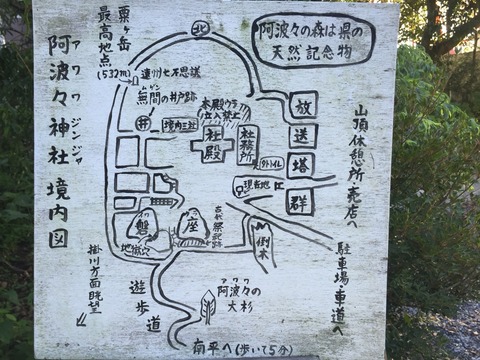 粟ヶ岳
最高地点
(532m)
阿波々神社 境内図
アワワジンジャ
北
阿波々の森は県の
天然記念物
遠州七不思議
無間の井戸跡
ムゲン
井
境内三社
本殿ウラ
立入禁止
社殿
社務所
外トイレ
現在地
放
送
塔
群
山頂休憩所・売店へ
駐車場・車道へ
磐
イワ
座
クラ
古代祭祀跡
地獄穴
倒木
掛川方面眺望
遊歩道
アワワ
阿波々の
大杉
南平へ(歩いて5分)